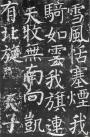 雪風恬塞煙我
騎如雲我旗連
天牧無南向凱
有北旋天子